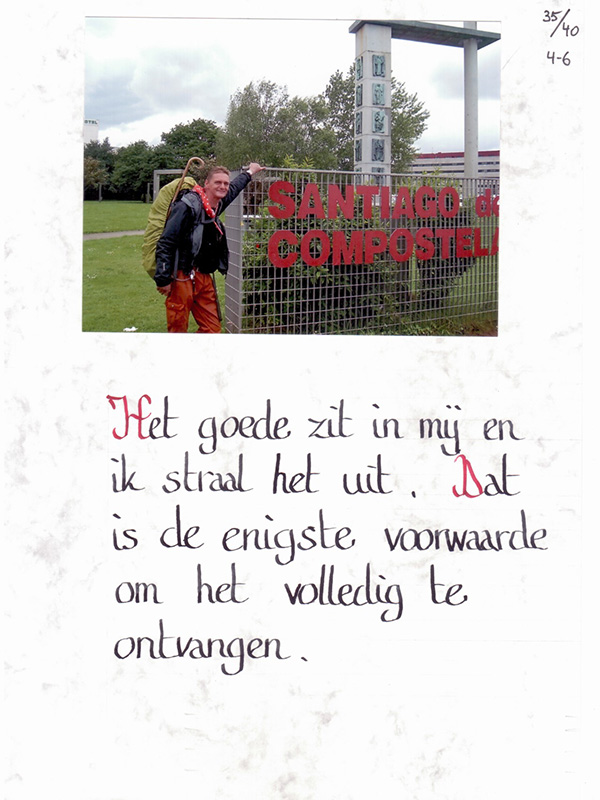 35/40
4-6
SANTIAGO de
COMPOSTELA
Het goede zit in mij en
ik straal het uit. Dat
is de enigste voorwaarde
om het volledig te
ontvangen.